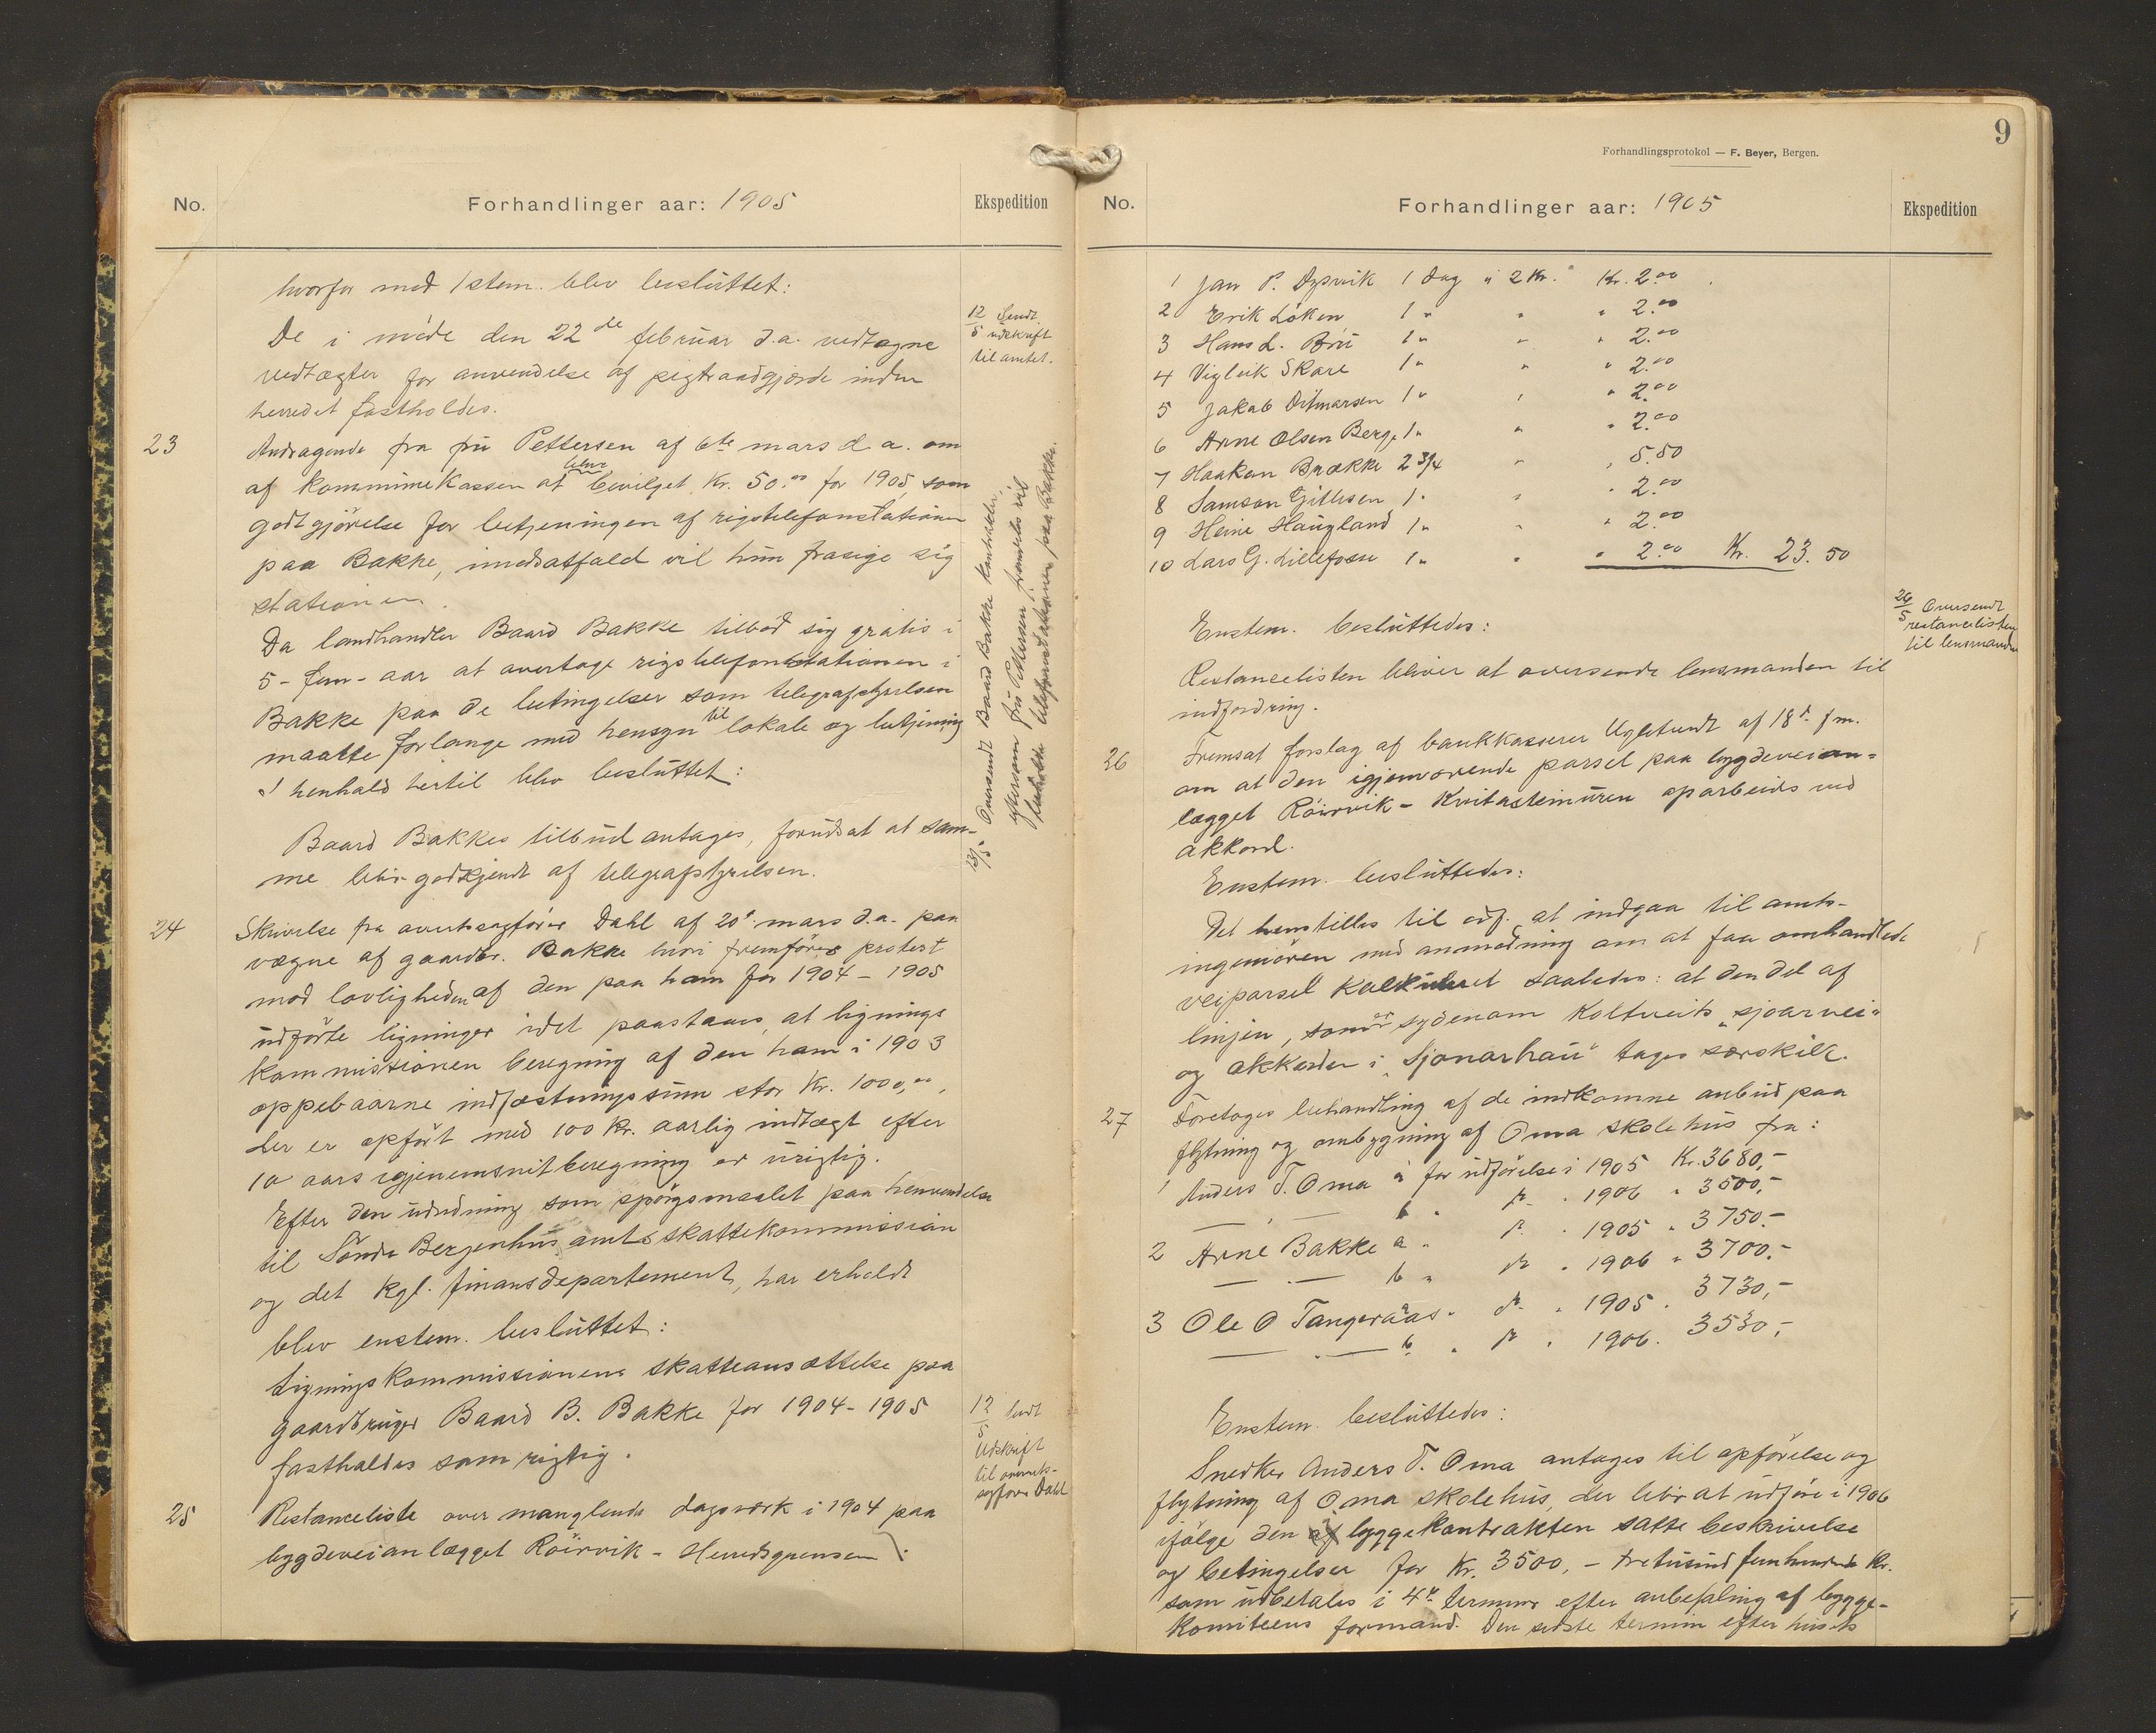 No.
Forhandlinger aar: 1905
Ekspedition
hvorfor med 1 stem. blev besluttet:
De i møde den 22de februar d.a. vedtagne
vedtægter for anvendelse af pigtraadgjærde inden
herredet fastholdes.
12/5 Sendt
udskrift
til amtet.
23
Andragende fra fru Pettersen af 6te mars d.a. om
af kommunekassen at blive bevilget Kr. 50.00 for 1905, som
godtgjørelse for betjeningen af rigstelefonstationen
paa Bakke, i modsatfald vil hun frasige sig
stationen.
Da landhandler Baard Bakke tilbød sig gratis i
5 - fem - aar at overtage rigstelefonstationen i
Bakke paa de betingelser som telegrafstyrelsen
maatte forlange med hensyn til lokale og betjening
I henhald hertil blev besluttet:
Baard Bakkes tilbud antages, forudsat at sam-
me blir godkjendt af telegrafstyrelsen.
13/5 Oversendt Baard Bakke kontrakten,
eftersom fru Pettersen fremdeles vil
beholde telefonstationen paa Bakke.
24
Skrivelse fra overretssagfører Dahl af 20de mars d.a. paa
vegne af gaardbr. Bakke hvori fremføres protest
mod lovligheden af den paa ham for 1904 - 1905
udførte ligninger idet paastaaes, at lignings
kommissionen beregning af den ham i 1903
oppebaarne indfæstningssum stor Kr. 1000,00,
der er opført med 100 Kr. aarlig indtægt efter
10 aars igjenemsnitberegning er urigtig.
Efter den udredning som spørgsmaalet paa henvendelse
til Søndre Bergenhus amts skattekommission
og det kgl. finansdepartement, har erholdt
blev enstem. besluttet:
Ligningskommissionens skatteansættelse paa
gaardbruger Baard B. Bakke for 1904 - 1905
fastholdes som rigtig.
12/5 Sendt
Udskrift
til overrets-
sagfører Dahl
25
Restanceliste over manglende dagsværk i 1904 paa
bygdeveianlægget Røirvik - Herredsgrænsen:
9
Forhandlingsprotokol — F. Beyer, Bergen.
No.
Forhandlinger aar: 1905
Ekspedition
1 Jan P. Dysvik 1 Dag a 2 Kr. Kr. 2.00
2 Erik Løken 1 " " " 2.00
3 Hans L. Bru 1 " " " 2.00
4 Vigleik Skare 1 " " " 2.00
5 Jakob Ditmarsen 1 " " " 2.00
6 Arne Olsen Berge 1 " " " 2.00
7 Haakon Brække 2 3/4 " " 5.50
8 Samson Gitlesen 1 " " " 2.00
9 Heine Haugland 1 " " " 2.00
10 Lars G. Lillefosse 1 " " " 2.00 Kr. 23.50
Enstem. besluttedes:
Restancelisten bliver at oversende lensmanden til
indfordring.
26/5 Oversendt
restancelisten
til lensmanden
26
Fremsat forslag af bankkasserer Ugletundt af 18de f.m.
om at den igjenværende parsel paa bygdeveian-
lægget Røirvik - Kvitasteinuren oparbeides ved
akkord.
Enstem. besluttedes:
Det henstilles til odf. at indgaa til amts-
ingeniøren med anmodning om at faa omhandlede
veiparsel kalkuleret saaledes: at den del af
linjen, som er sydenom Koltveits "sjoarvei"
og akkorden i "Sjonarhau" tages særskilt.
27
Foretages behandling af de indkomne anbud paa
flytning og ombygning af Oma skolehus fra:
1 Anders T. Oma a for udførelse i 1905 Kr. 3680,-
— " — b " " 1906 " 3500,-
2 Arne Bakke a " " 1905 " 3750.-
— " — b " " 1906 " 3700.-
3 Ole O Tangeraas a " " 1905 " 3730,-
— " — b " " 1906 " 3530,-
Enstem. besluttedes:
Snedker Anders T. Oma antages til opførelse og
flytning af Oma skolehus, der blir at udføre i 1906
ifølge den i byggekontrakten satte beskrivelse
og betingelser for Kr. 3500,- tretusind femhundrede Kr.
som udbetales i 4re terminer efter anbefaling af bygge-
komiteens formand. Den sidste termin efter husets